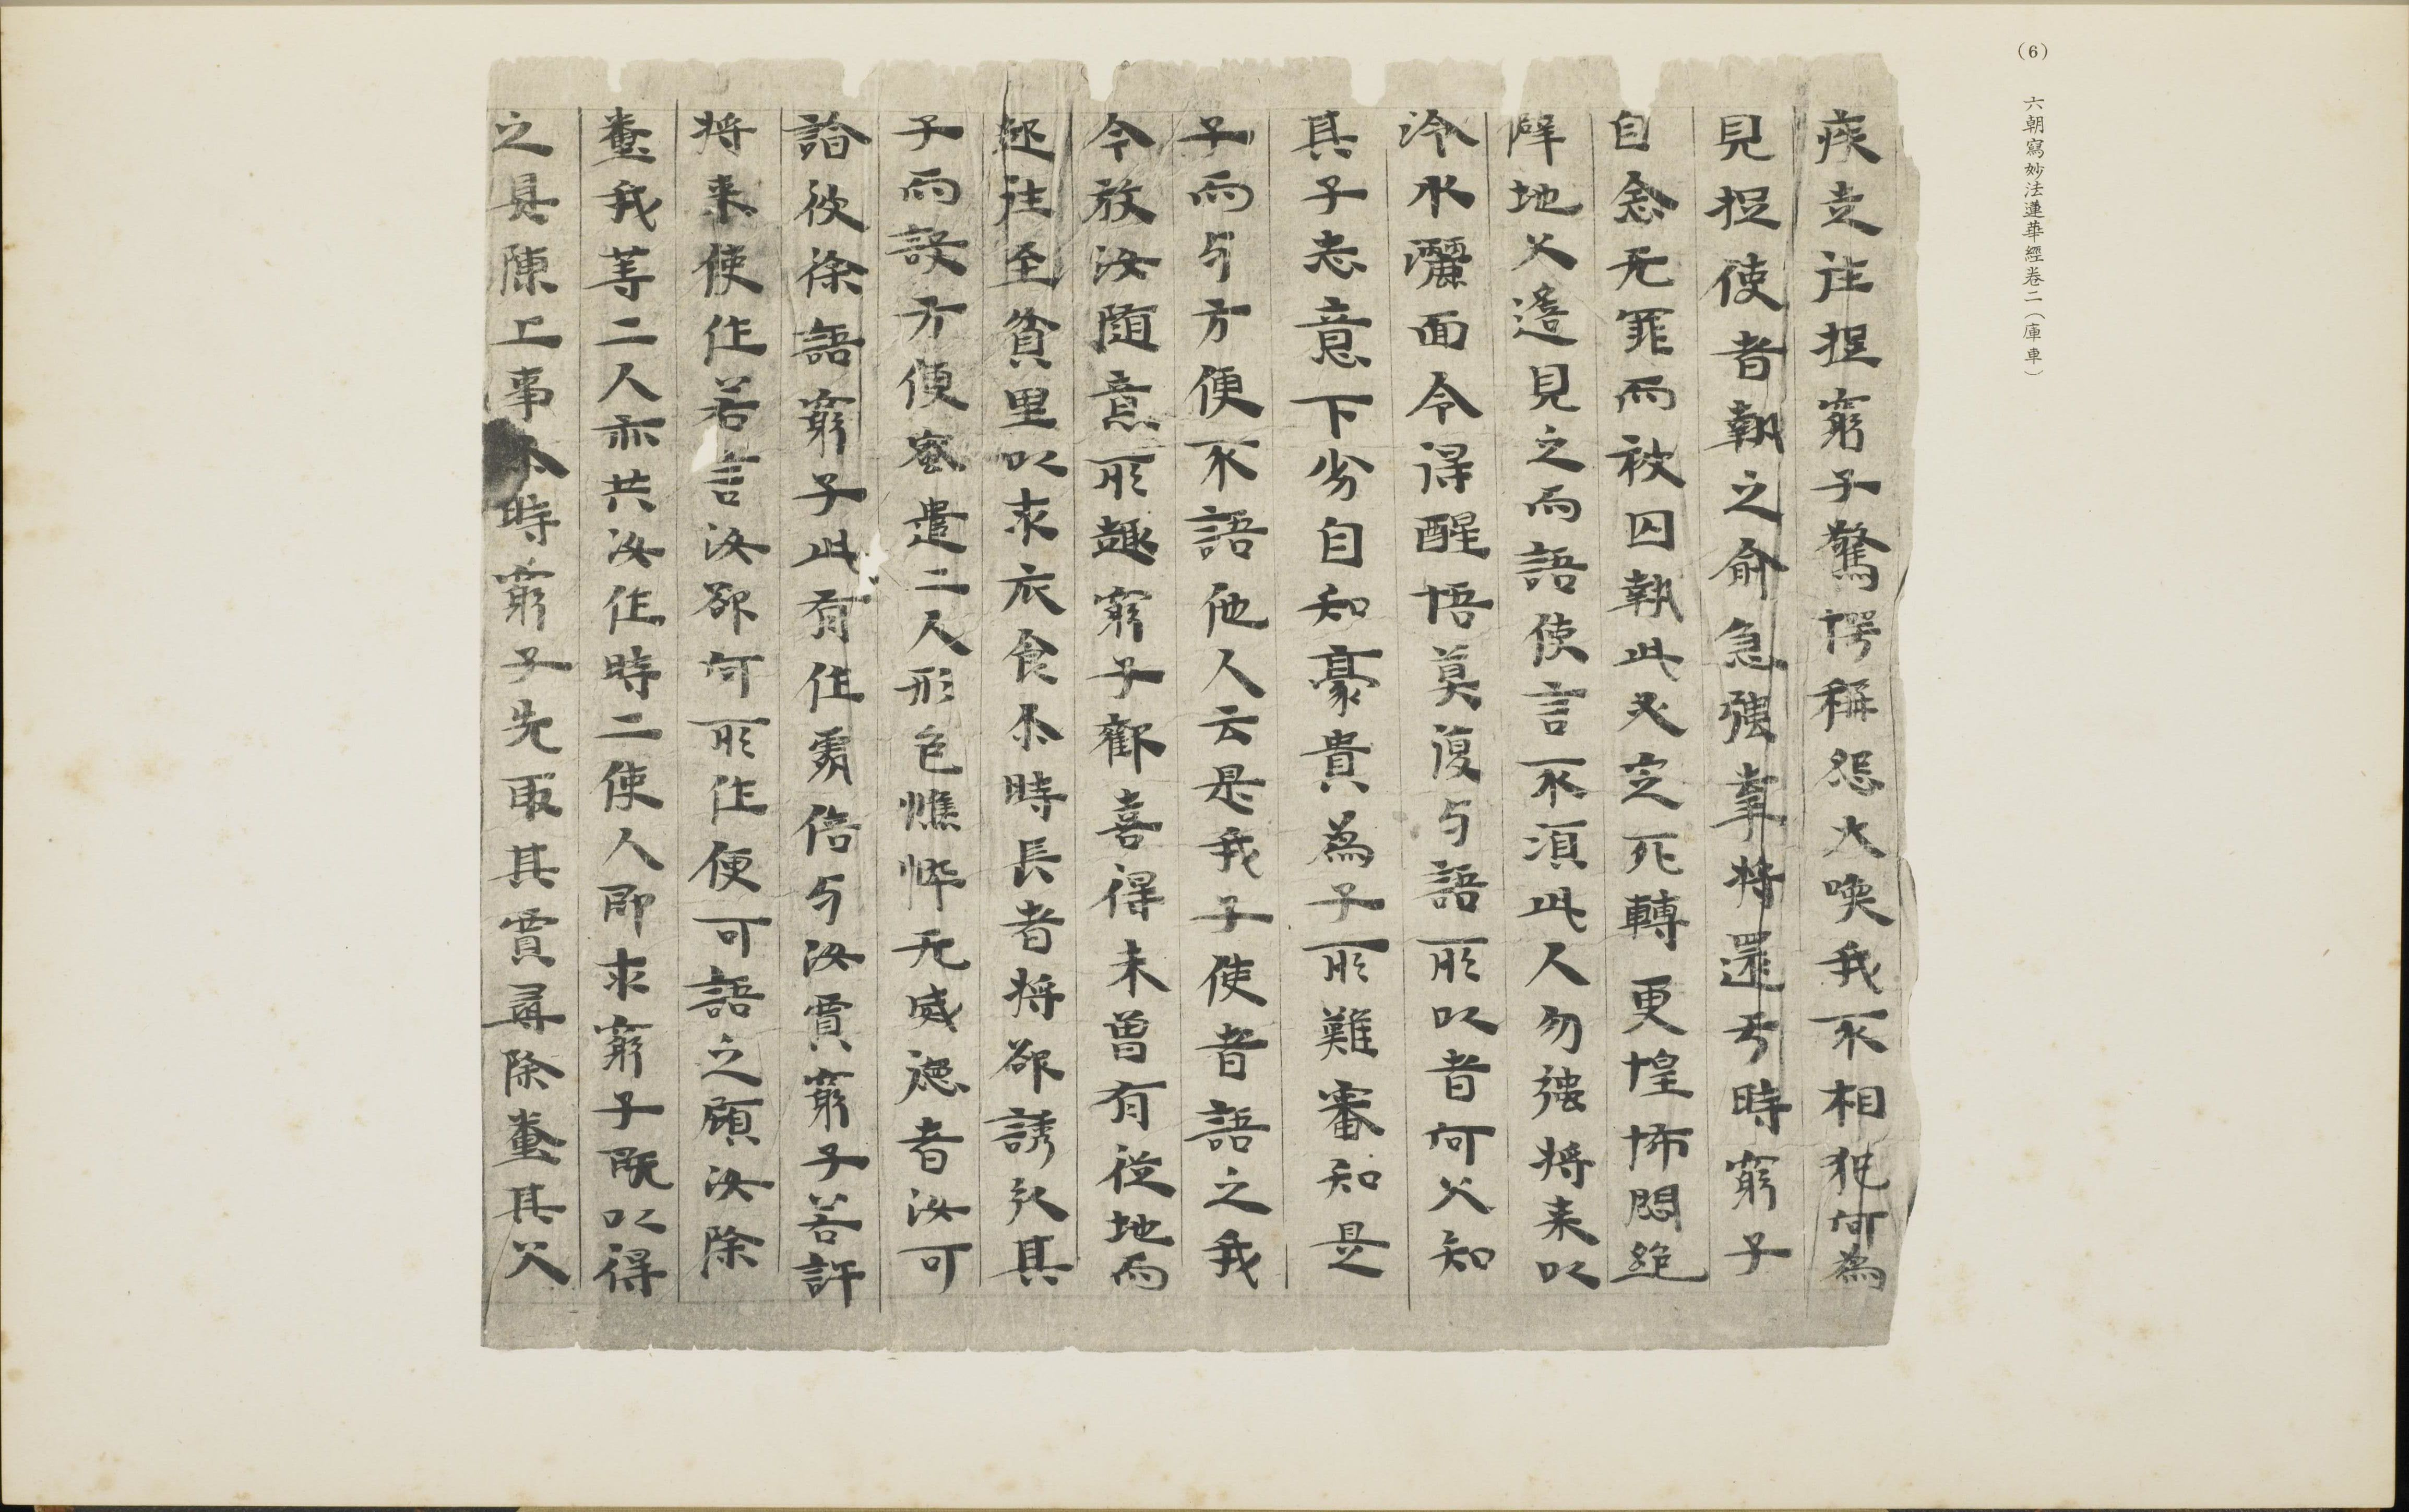 (6)
六朝寫妙法蓮華經卷二(庫車)
疾走往捉窮子驚愕稱怨大喚我不相犯何為
見捉使者執之俞急強牽將還于時窮子
自念无罪而被囚執此必定死轉更惶怖悶絕
躃地父遙見之而語使言不須此人勿強將来以
冷水灑面令得醒悟莫復与語所以者何父知
其子志意下劣自知豪貴為子所難審知是
子而与方便不語他人云是我子使者語之我
今放汝隨意所趣窮子歡喜得未曾有從地而
起往至貧里以求衣食尒時長者將欲誘引其
子而設方便密遣二人形色憔悴无威德者汝可
詣彼徐語窮子此有作處倍与汝賈窮子若許
將来使作若言汝欲何所作便可語之顧汝除
糞我等二人亦共汝作時二使人即求窮子既以得
之具陳上事尒時窮子先取其賈尋除糞其父